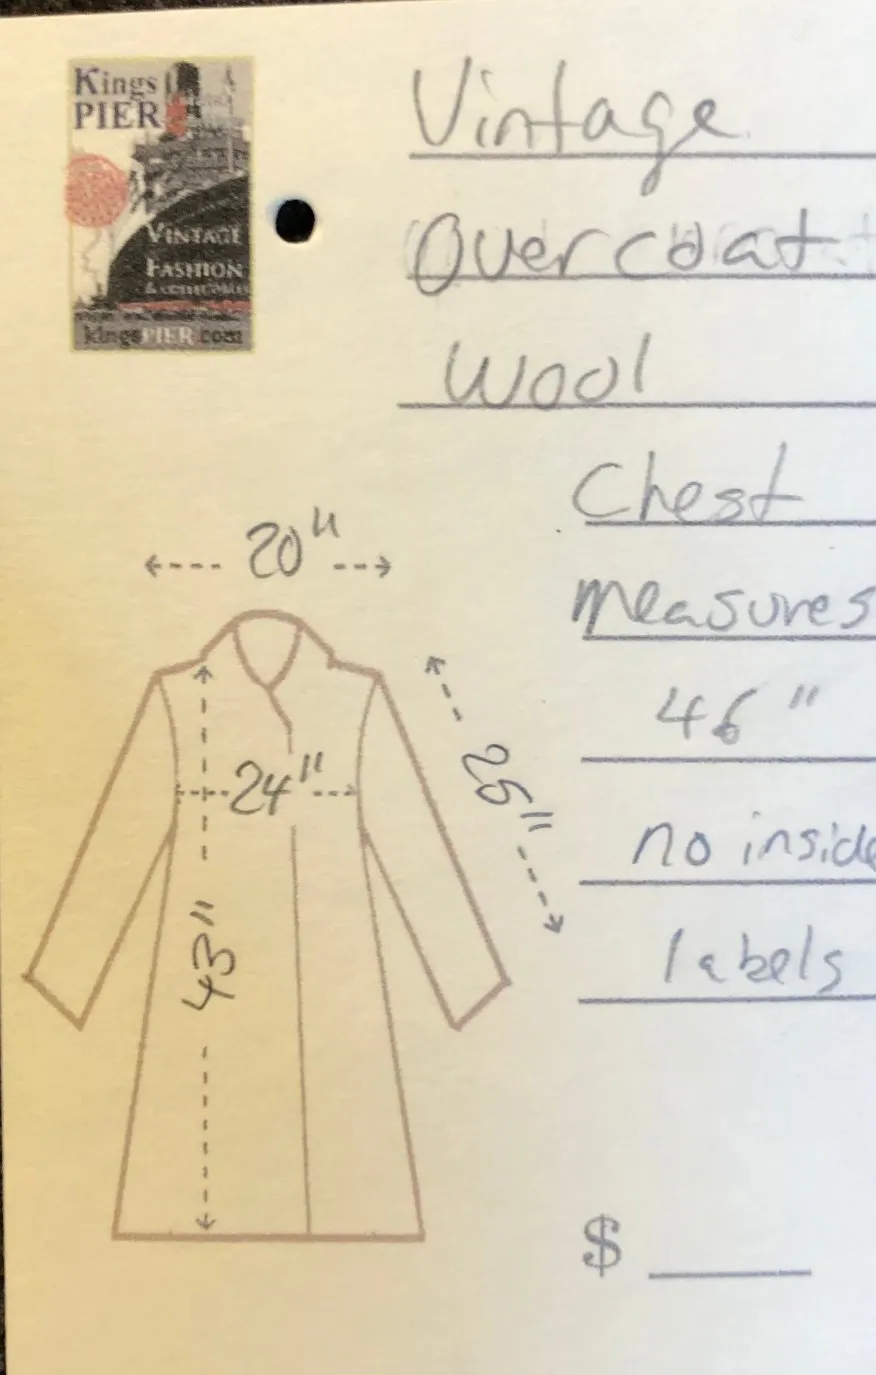 Kings
PIER
VINTAGE
FASHION
& COLLECTIBLES
kingsPIER.com
Vintage
Overcoat
Wool
Chest
measures
46"
no inside
labels
20"
24"
25"
43"
$